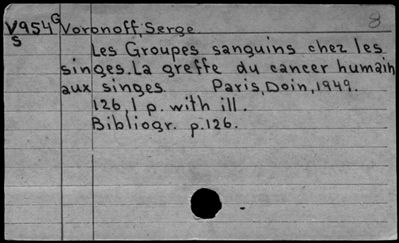 V954G Voronoff, Serge 8
S
Les Groupes sanguins chez les
singes. La greffe du cancer humain
aux singes Paris, Doin, 1949.
126, 1 p. with ill.
Bibliogr. p.126.